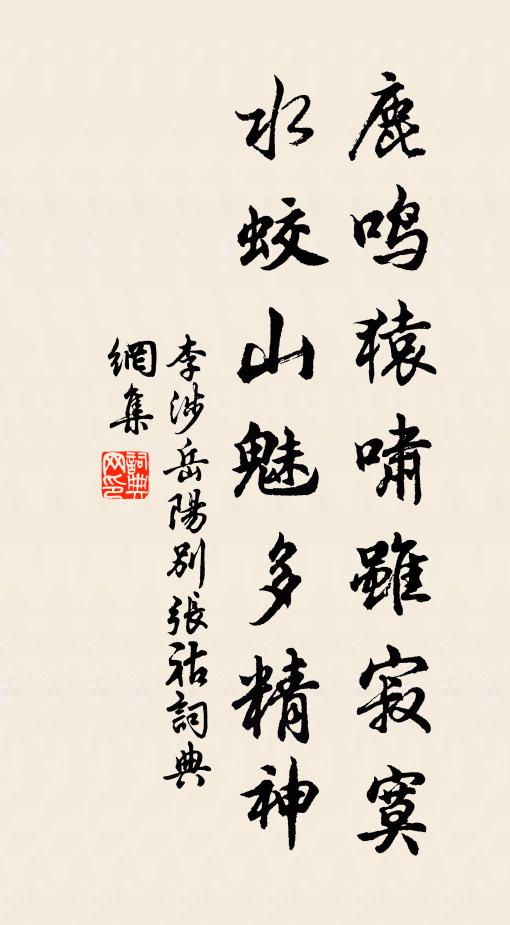 鹿鳴猿嘯雖寂寞
水蛟山魅多精神
李涉岳陽別張祜詞典
網集
詞典
网印